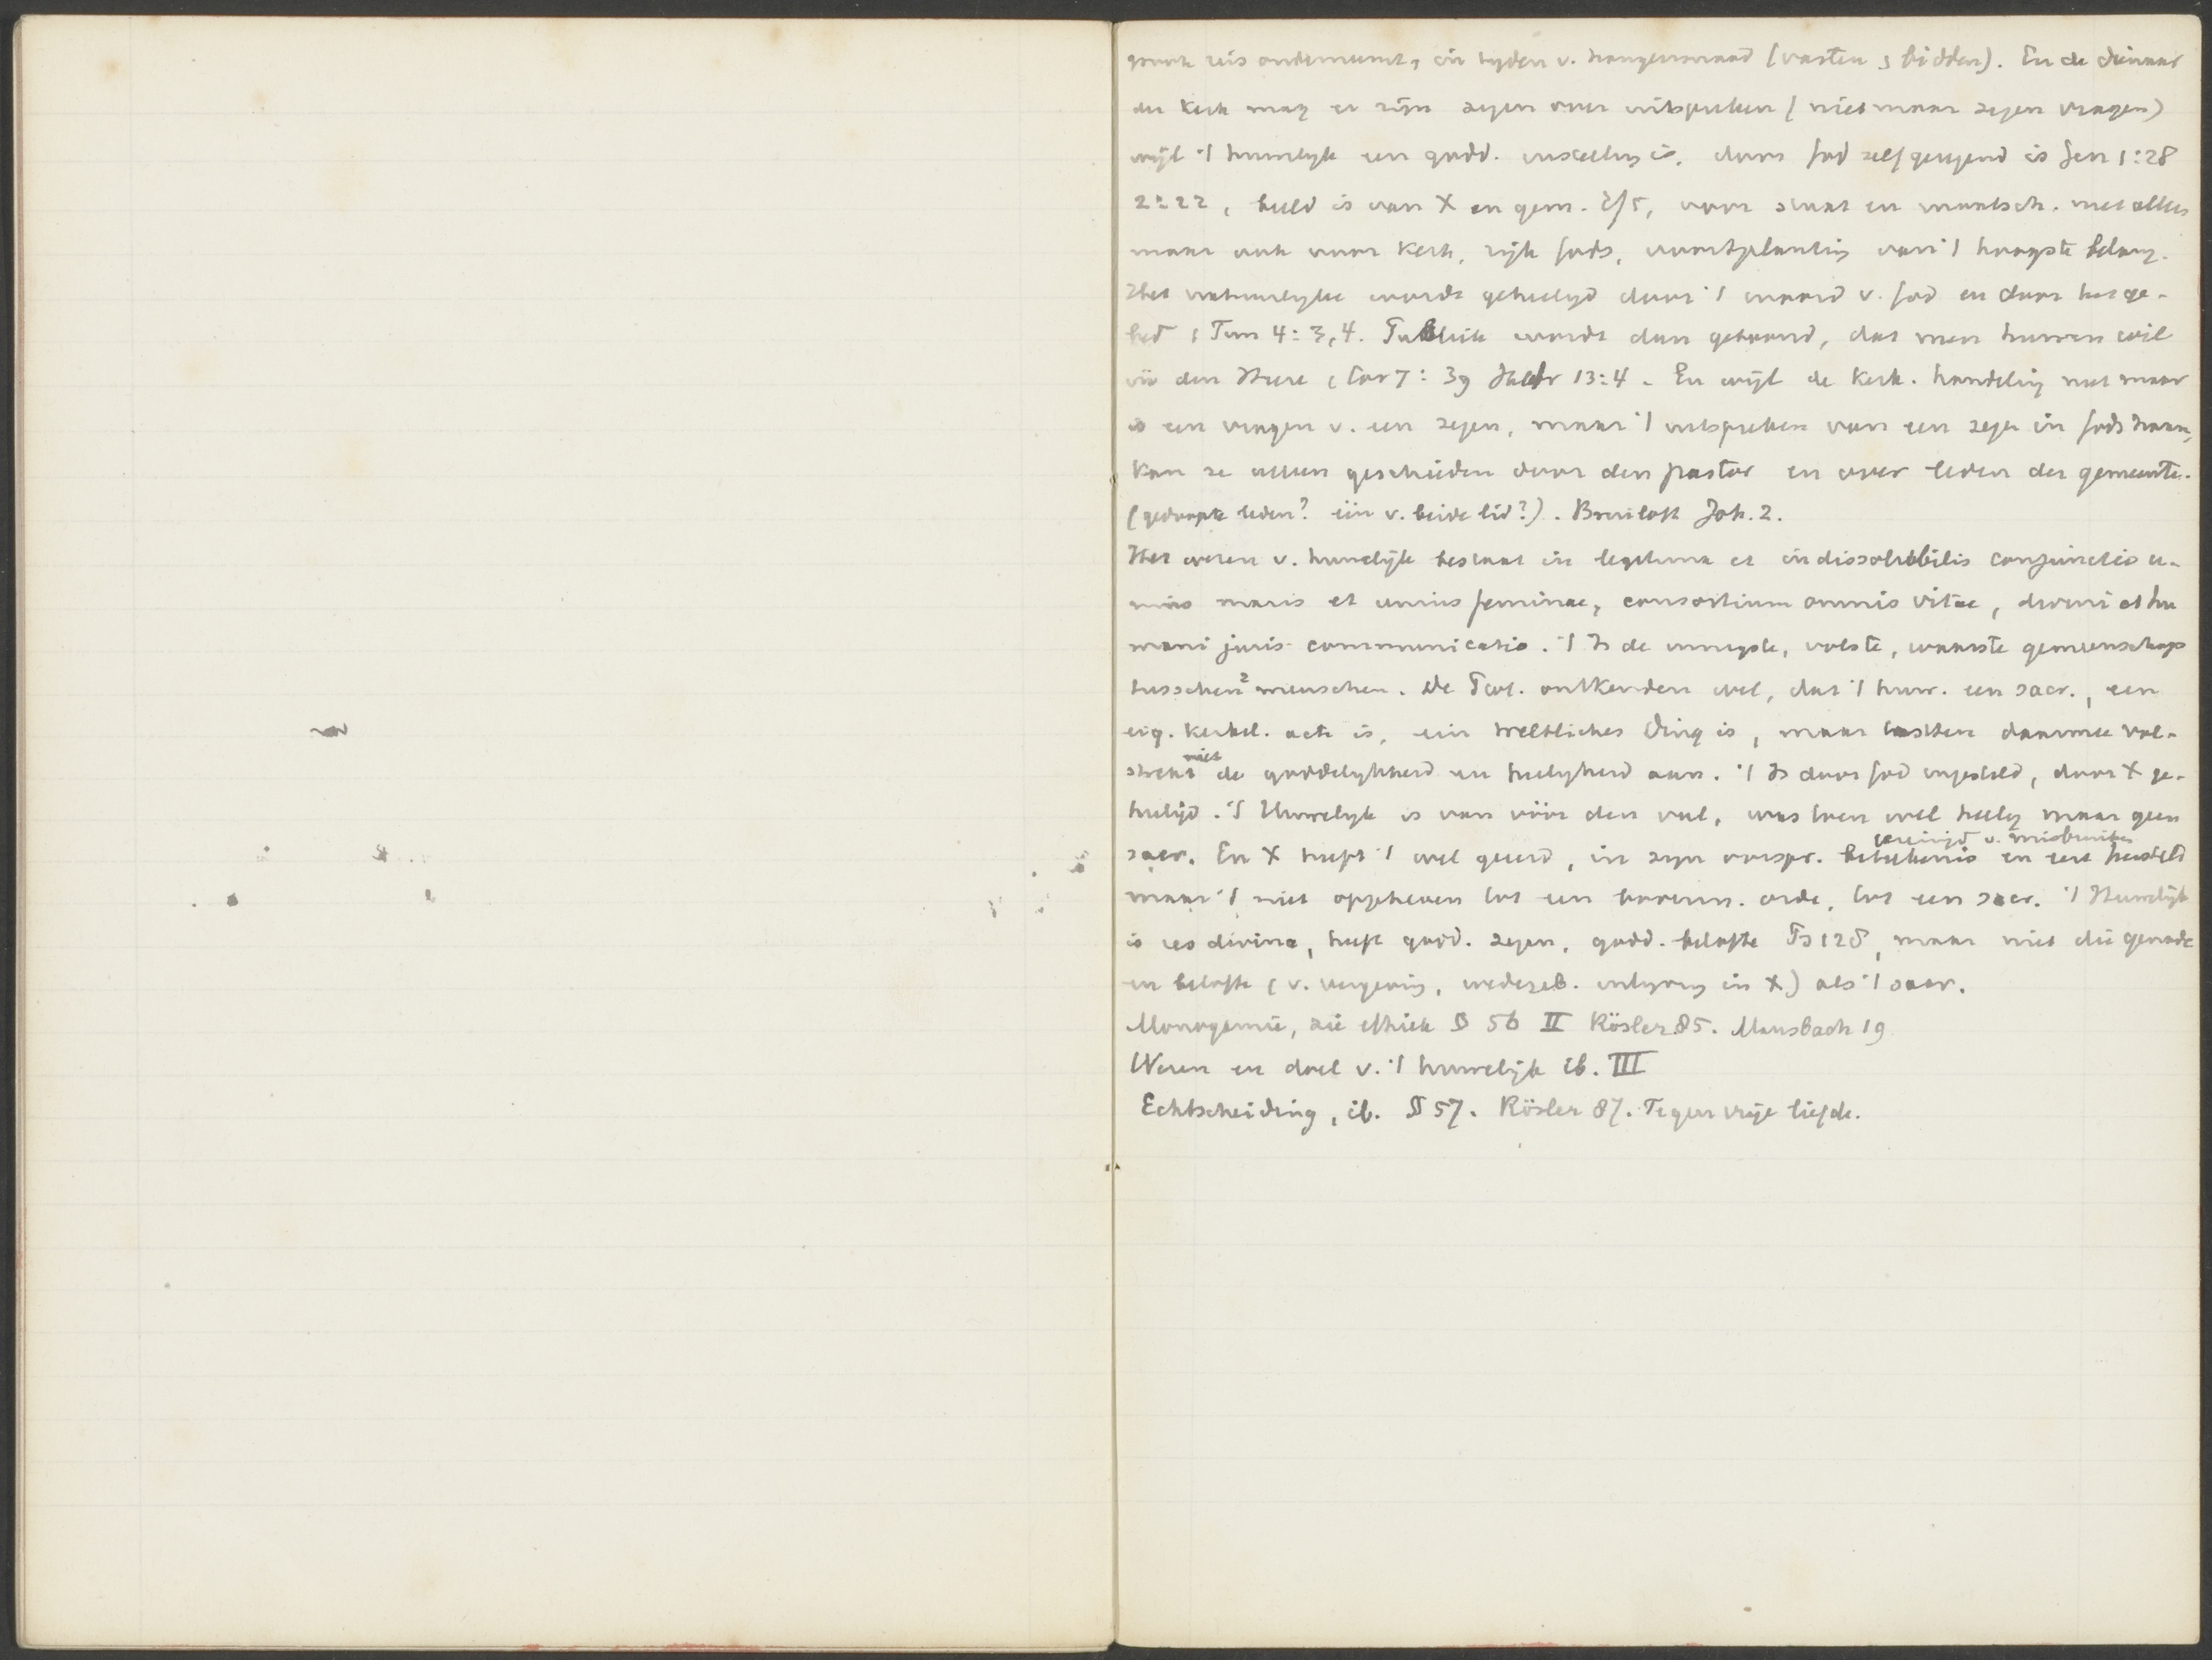 groote reis onderneemt, in tyden v. hongersnood (vasten & bidden). En de dienaar
der kerk mag er zijn zegen over uitspreken (niet maar zegen vragen)
wijl 't huwelyk een godd. instelling is, door God zelf gezegend is Gen 1:28
2:22, beeld is van X en gem. Ef 5, voor staat en maatsch. niet alleen
maar ook voor kerk, rijk Gods, voortplanting van 't hoogste belang.
Het natuurlyke wordt geheiligd door 't woord v. God en door het ge-
bed 1 Tim 4:3,4. Publiek wordt dan getoond, dat men huwen wil
in den Heere 1 Cor 7:39 Hebr 13:4. En wijl de kerk. handeling niet maar
is een vragen v. een zegen, maar 't uitspreken van een zegen in Gods naam,
kan ze alleen geschieden door den pastor en over leden der gemeente.
(gedoopte leden? één v. beide lid?). Bruiloft Joh. 2.
Het wezen v. huwelijk bestaat in legitima et indissolubilis conjunctio u-
nius maris et unius feminae, consortium omnis vitae, divini et hu
mani juris communicatio. 't Is de innigste, volste, waarste gemeenschap
tusschen 2 menschen. De Prot. ontkenden wel, dat 't huw. een sacr., een
eig. kerkel. acte is, ein weltliches Ding is, maar tastten daarmee vol-
strekt niet de goddelykheid en heiligheid aan. 't Is door God ingesteld, door X ge-
heiligd. 't Huwelyk is van vóór den val, was toen wel heilig maar geen
sacr. En X heeft 't wel geëerd, in zyn oorspr. beteekenis en eere hersteld gereinigd v. misbruiken
maar 't niet opgeheven tot een bovenn. orde, tot een sacr. 't Huwelijk
is res divina, heeft godd. zegen, godd. belofte Ps 128, maar niet die genade
en belofte (v. vergeving, wedergeb. inlyving in X) als 't sacr.
Monogamie, zie ethiek § 56 II Rösler 85. Mausbach 19
Wezen en doel v. 't huwelijk ib. III
Echtscheiding, ib. § 57. Rösler 87. Tegen vrije liefde.